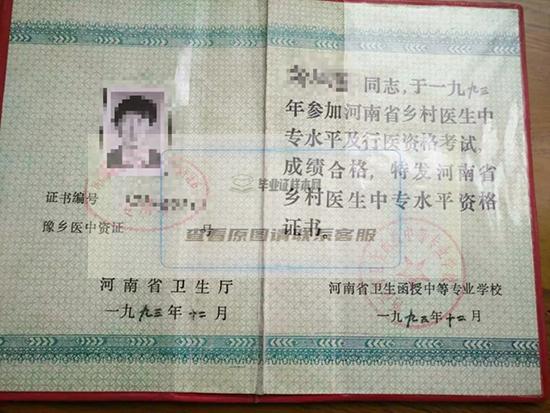 同志,于一九九三
年参加河南省乡村医生中
专水平及行医资格考试,
成绩合格,特发河南省
乡村医生中专水平资格
证书。
证书编号
豫乡医中资证
号
河南省卫生厅
一九九三年十二月
河南省卫生函授中等专业学校
一九九三年十二月
毕业证样本网
查看原图请联系客服